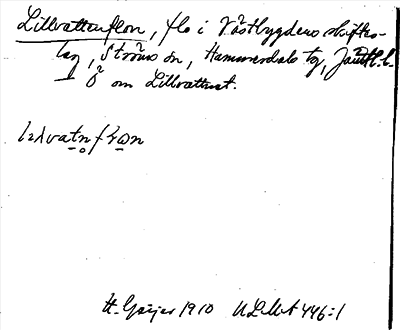 Lillvattenflon, flo i Västbygdens skifts-
lag, Ströms sn, Hammerdals tg, Jämtl. l.
— ö om Lillvattnet.
H. Geijer 1910 ULMA 446:1